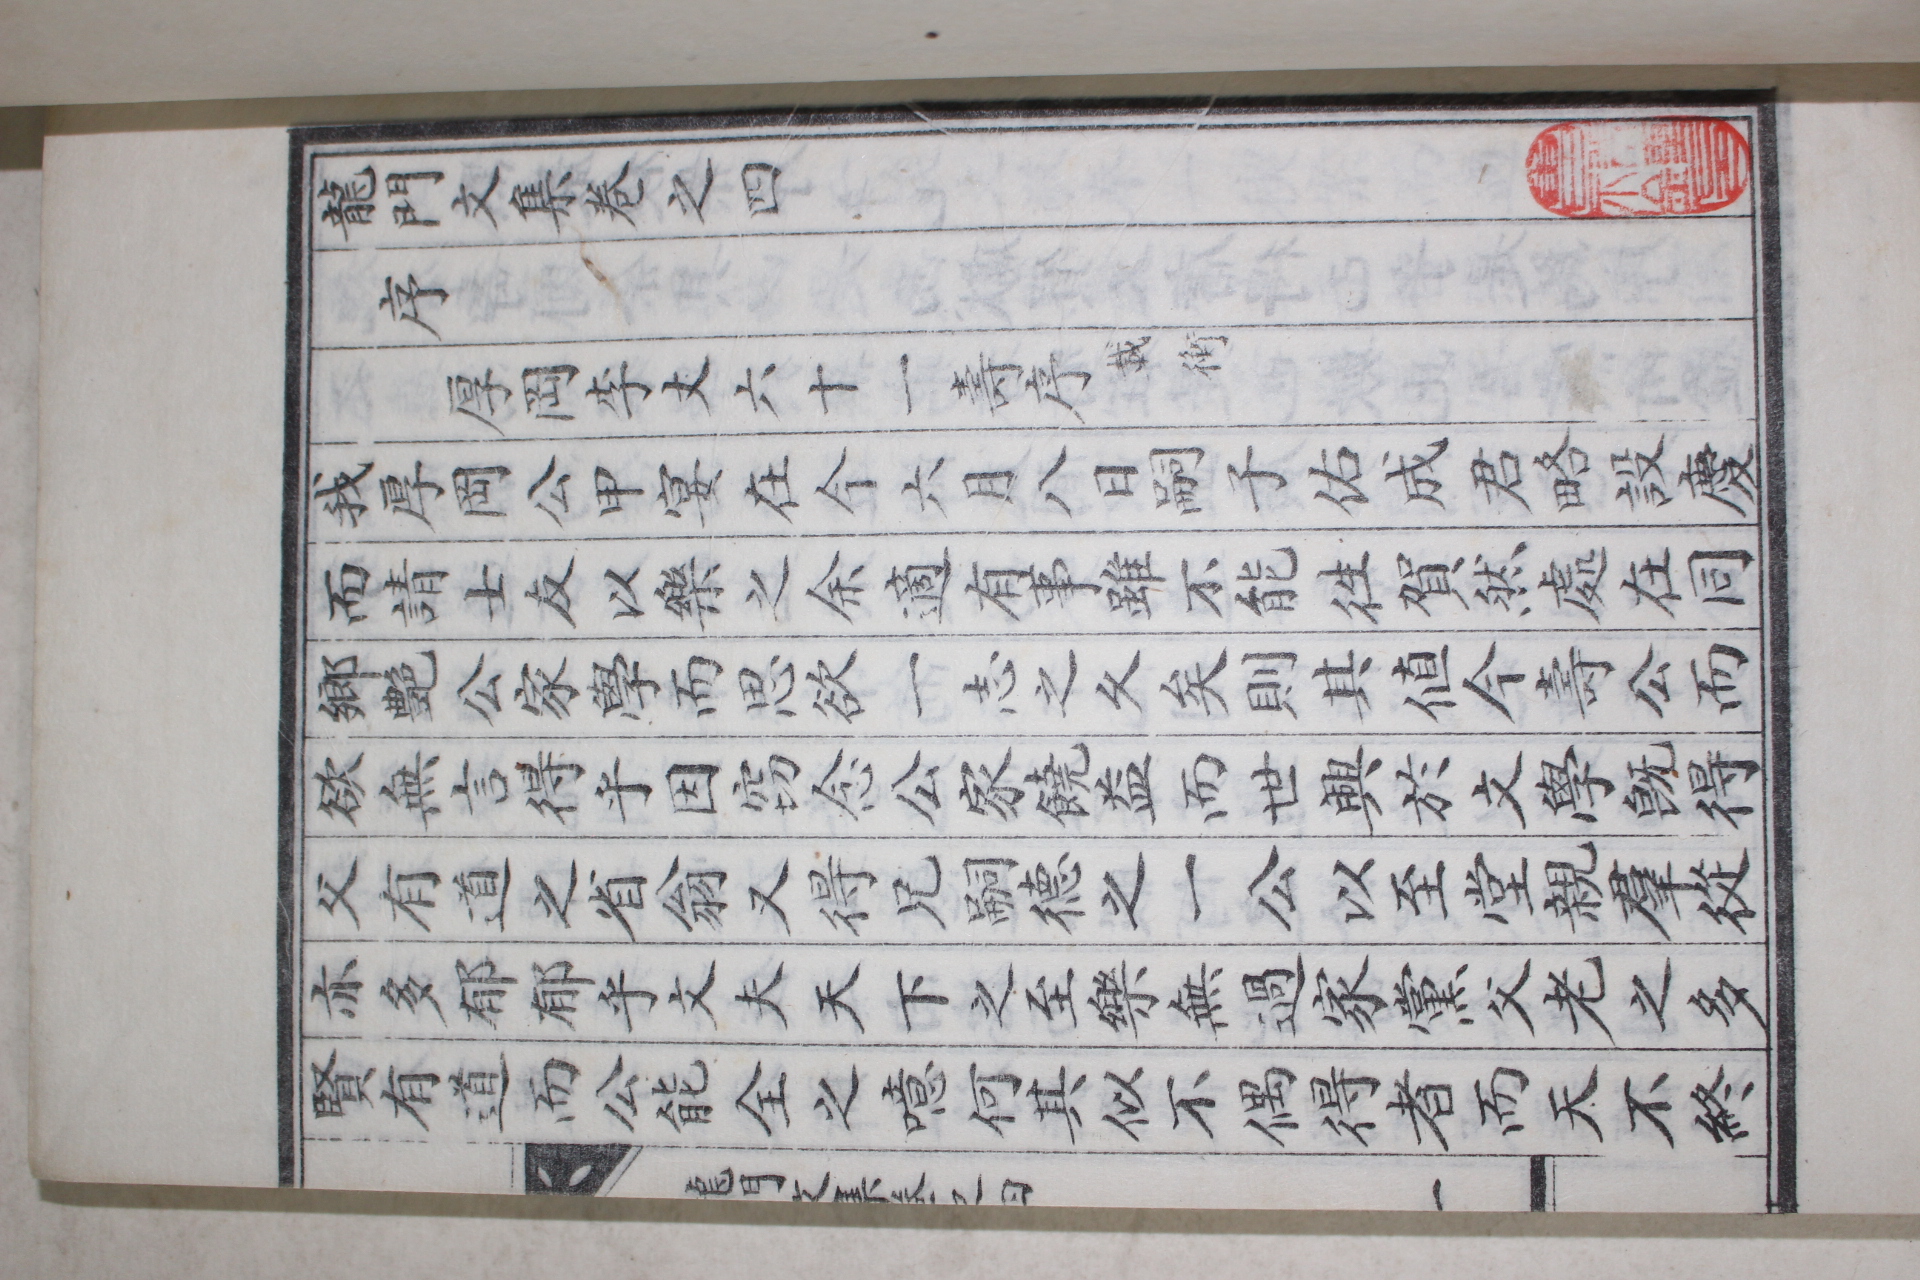 龍門文集卷之四
序
厚岡李丈六十一壽序 載衡
我厚岡公甲宴在今六月八日嗣子佑成君略設慶
而請士友以樂之余適有事雖不能徃賀然處在同
鄉艷公家學而思欲一志之久矣則其値今壽公而
欲無言得乎因窃念公家饒益而世興於文學旣得
父有道之省翁又得兄嗣德之一公以至堂親羣從
亦多郁郁乎文夫天下之至樂無過家黨父老之多
賢有道而公能全之噫何其似不偶得者而天不終
龍門文集卷之四
一